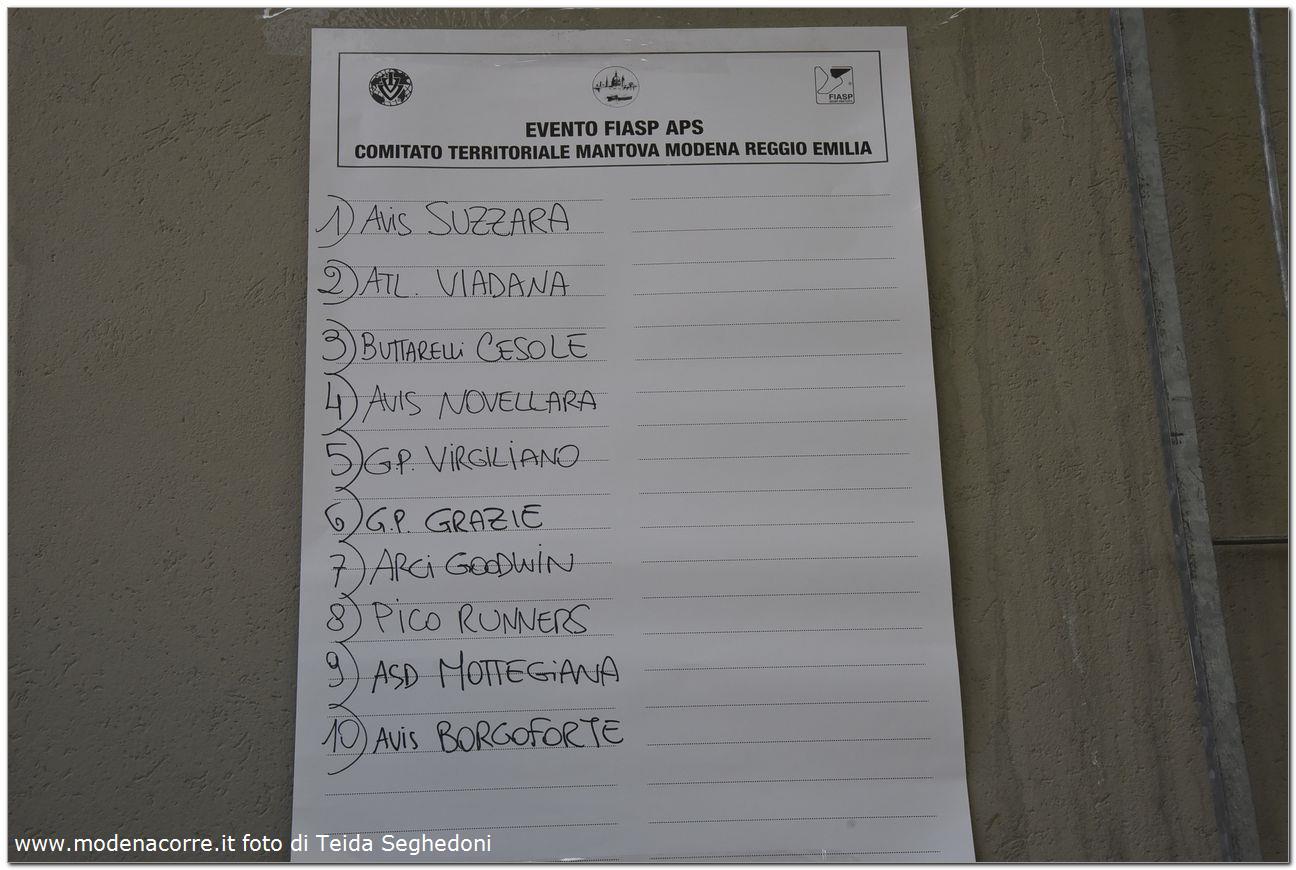 FIASP
EVENTO FIASP APS
COMITATO TERRITORIALE MANTOVA MODENA REGGIO EMILIA
1) AVIS SUZZARA
2) ATL. VIADANA
3) BUTTARELLI CESOLE
4) AVIS NOVELLARA
5) G.P. VIRGILIANO
6) G.P. GRAZIE
7) ARCI GOODWIN
8) PICO RUNNERS
9) ASD MOTTEGIANA
10) AVIS BORGOFORTE
www.modenacorre.it foto di Teida Seghedoni